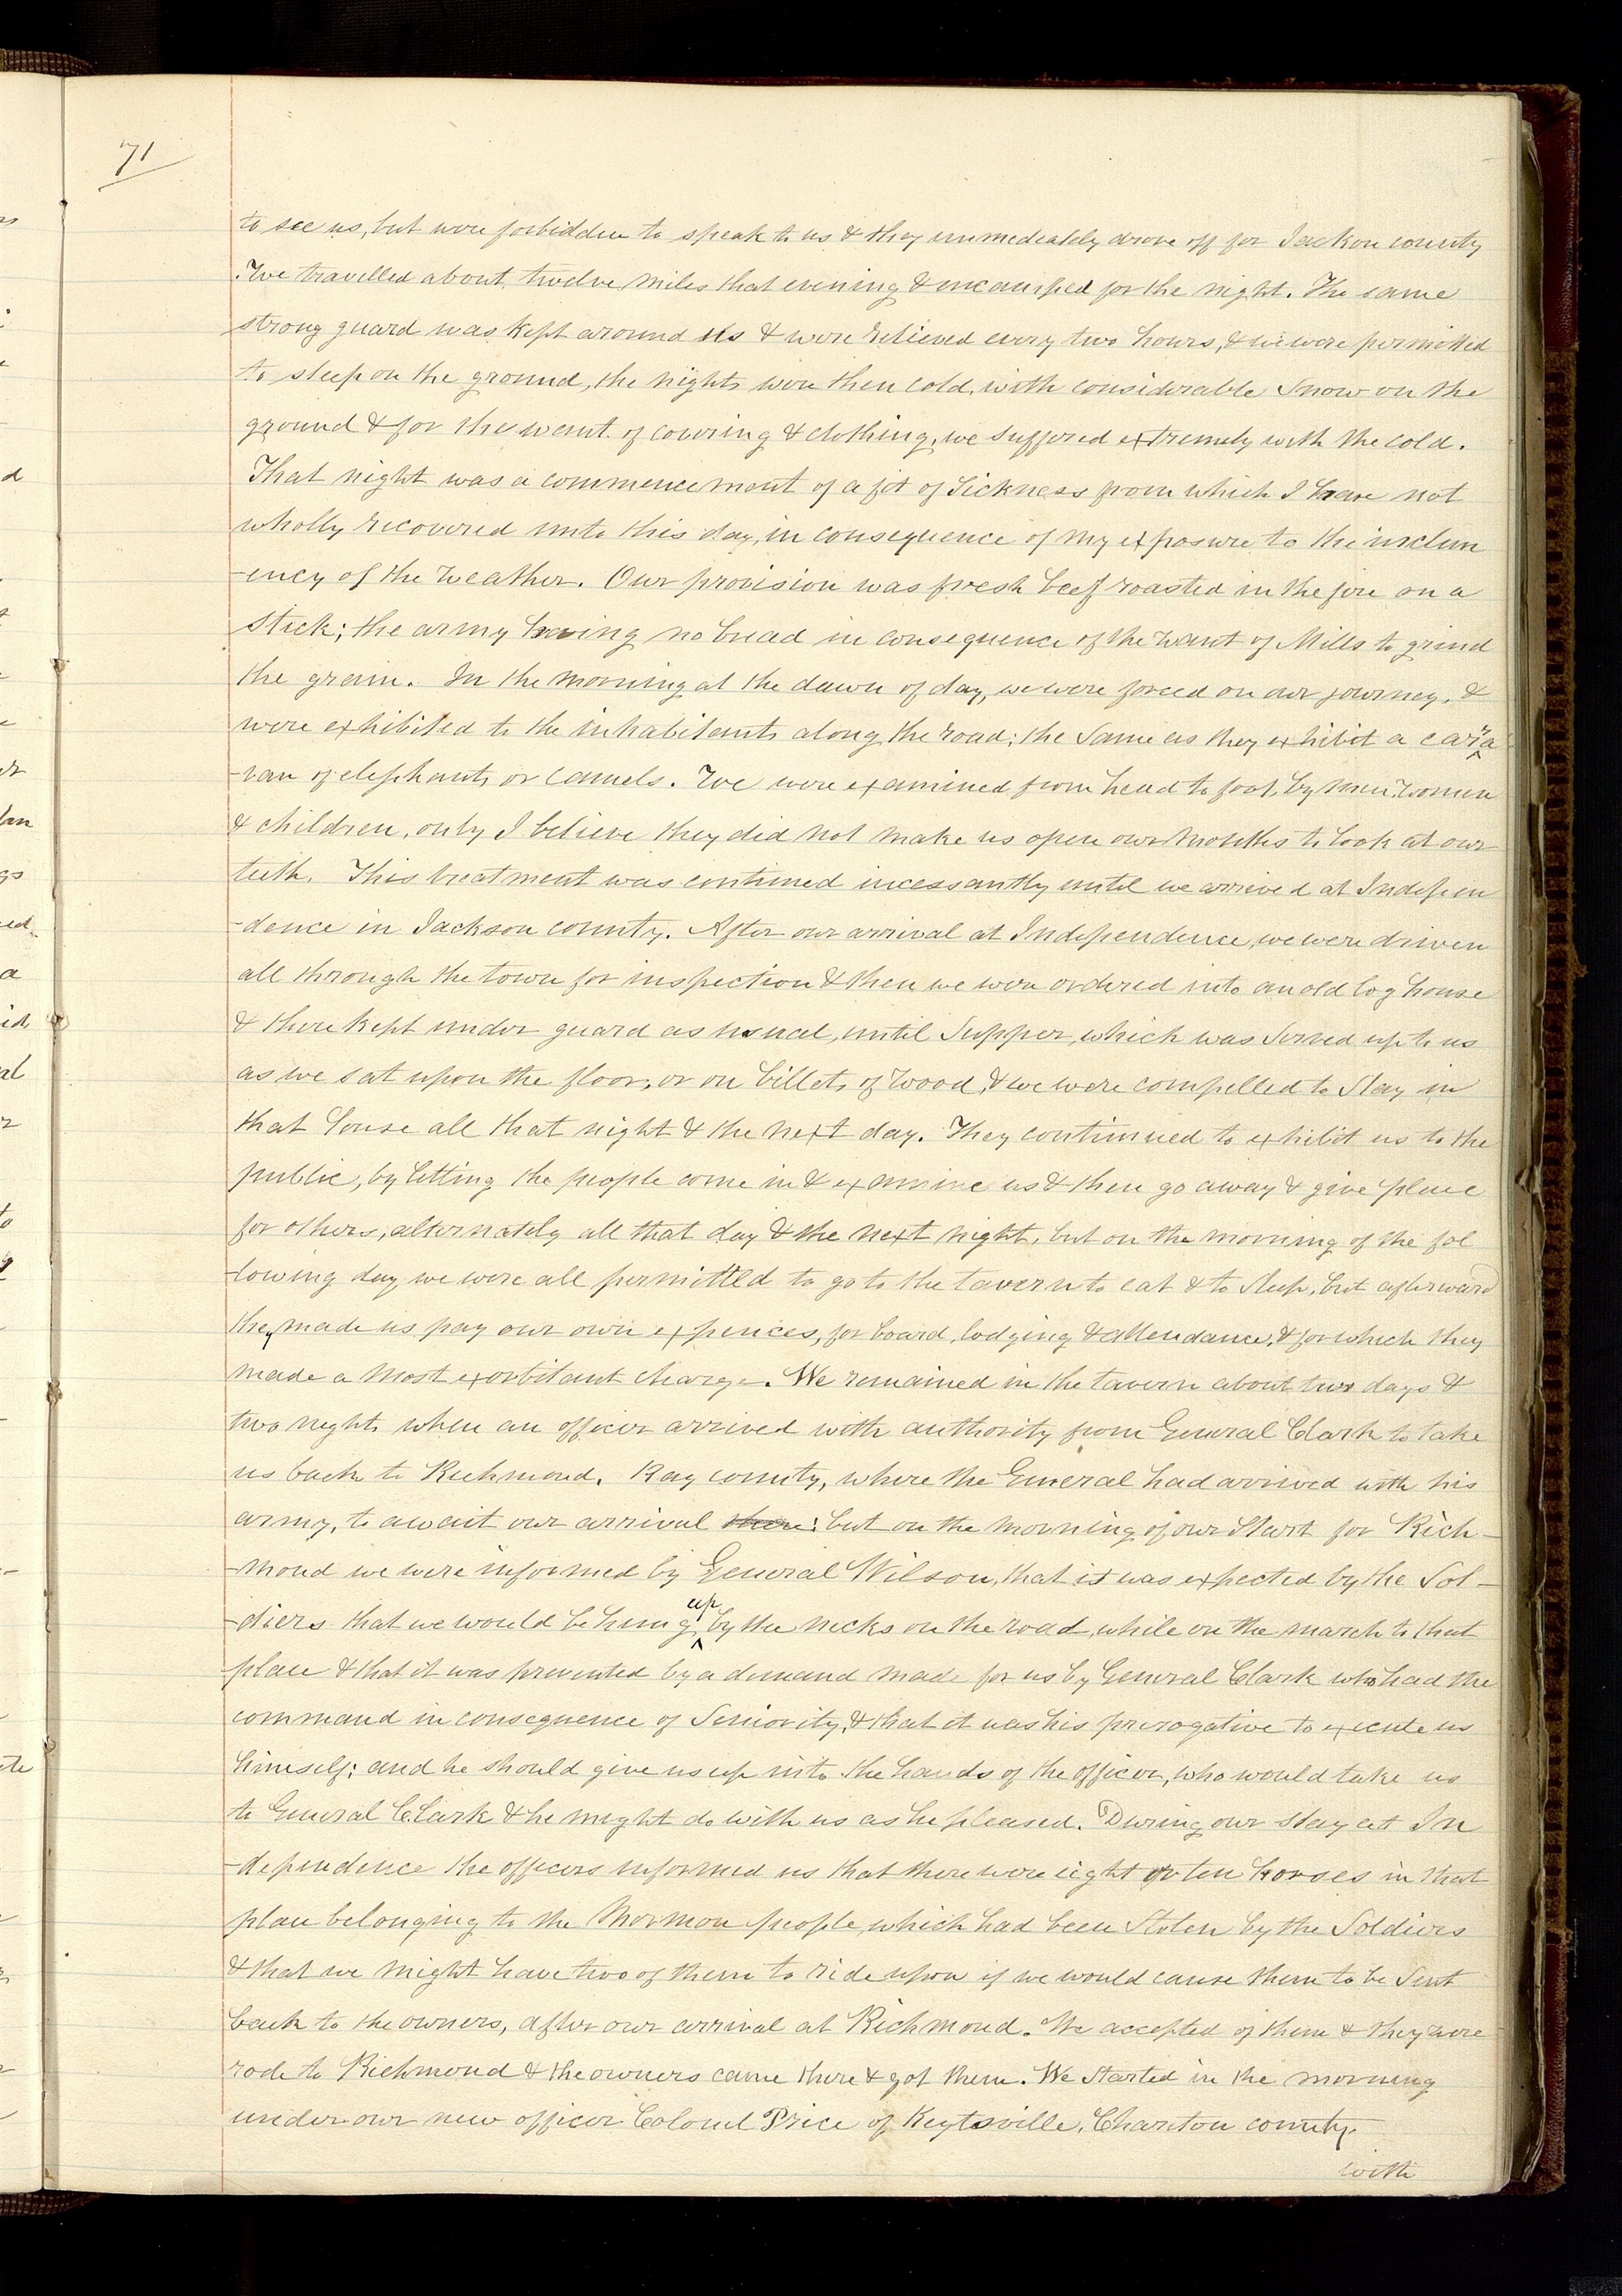 71
to see us, but were forbidden to speak to us & they immedeately drove off for Jackon county
We travelled about twelve miles that evening & encamped for the night. The same
strong guard was kept around us & were relieved every two hours, & we were permitted
to sleep on the ground, the nights were then cold, with considerable Snow on the
ground & for the want of covering & clothing, we suffered extremely with the cold.
That night was a commencement of a fit of Sickness from which I have not
wholly recovered unto this day, in consequence of my exposure to the inclem
-ency of the weather. Our provision was fresh beef roasted in the fire on a
Stick; the army having no bread in consequence of the want of Mills to grind
the grain. In the morning at the dawn of day, we were forced on our journey, &
were exhibited to the inhabitants along the road; the same as they exhibit a cara
-van of elephants or camels. We were examined from head to foot, by men, women
& children, only I believe they did not make us open our mouths to look at our
teeth. This treatment was continued incessantly until we arrived at Indepen
-dence in Jackson county. After our arrival at Independence, we were driven
all through the town for inspection & then we were ordered into an old log house
& there kept under guard as usual, until Supper, which was Served up to us
as we sat upon the floor, or on billets of wood, & we were compelled to Stay in
that house all that night & the next day. They continued to exhibit us to the
public, by letting the people come in & examine us & then go away & give place
for others, alternately all that day & the next night, but on the morning of the fol
-lowing day we were all permitted to go to the tavern to eat & to Sleep, but afterward
they made us pay our own expences, for board, lodging & attendance, & for which they
made a most exorbitant charge. We remained in the tavern about two days &
two nights when an officer arrived with authority from General Clark to take
us back to Richmond, Ray county, where the General had arrived with his
army, to await our arrival there; but on the morning of our Start for Rich-
-mond we were informed by General Wilson, that it was expected by the Sol-
-diers that we would be hung up by the necks on the road, while on the march to that
place & that it was prevented by a demand made for us by General Clark who had the
command in consequence of Seniority, & that it was his prerogative to execute us
himself; and he should give us up into the hands of the officer, who would take us
to General Clark & he might do with us as he pleased. During our stay at In
-dependence the officers informed us that there were eight or ten horses in that
place belonging to the Mormon people, which had been Stolen by the Soldiers
& that we might have two of them to ride upon if we would cause them to be Sent
back to the owners, after our arrival at Richmond. We accepted of them & they were
rode to Richmond & the owners came there & got them. We Started in the morning
under our new officer Colonel Price of Keytsville, Chariton county
with